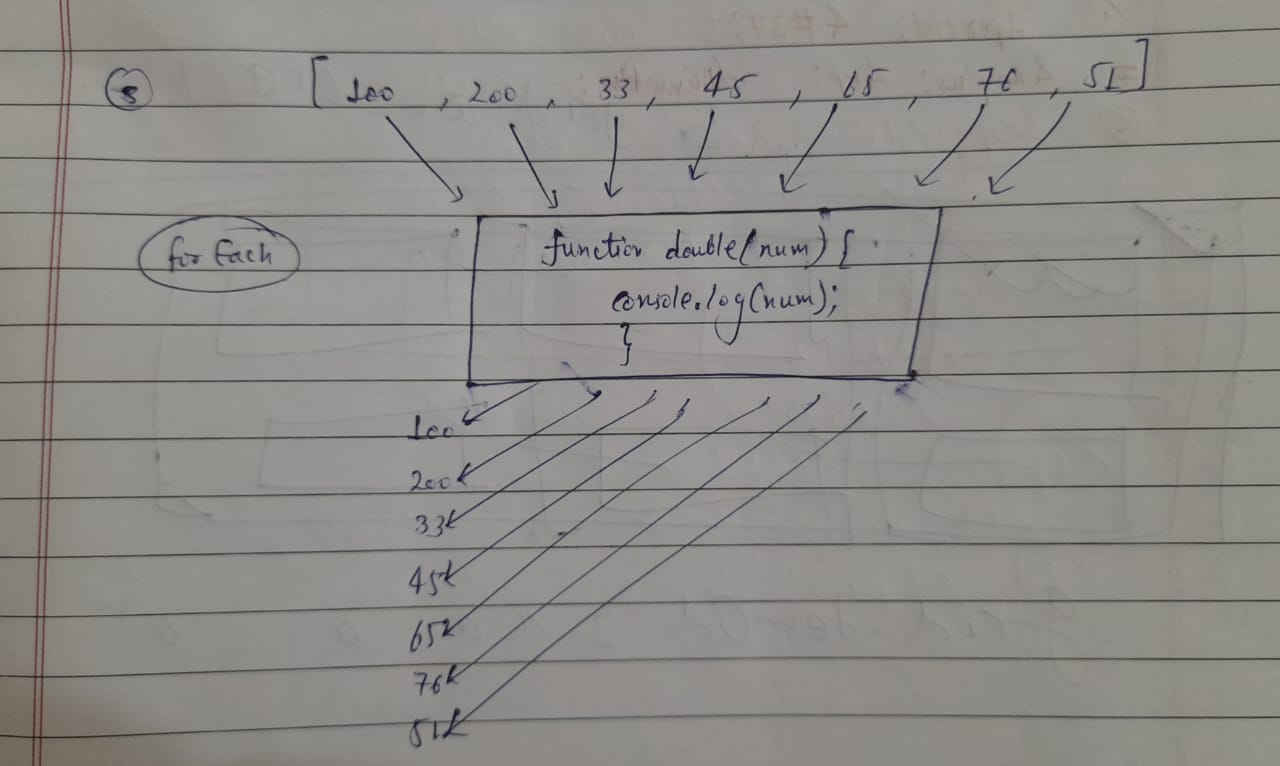 5
[ 100 , 200 , 33 , 45 , 65 , 76 , 51 ]
for Each
function double(num) {
console.log(num);
}
100
200
33
45
65
76
51